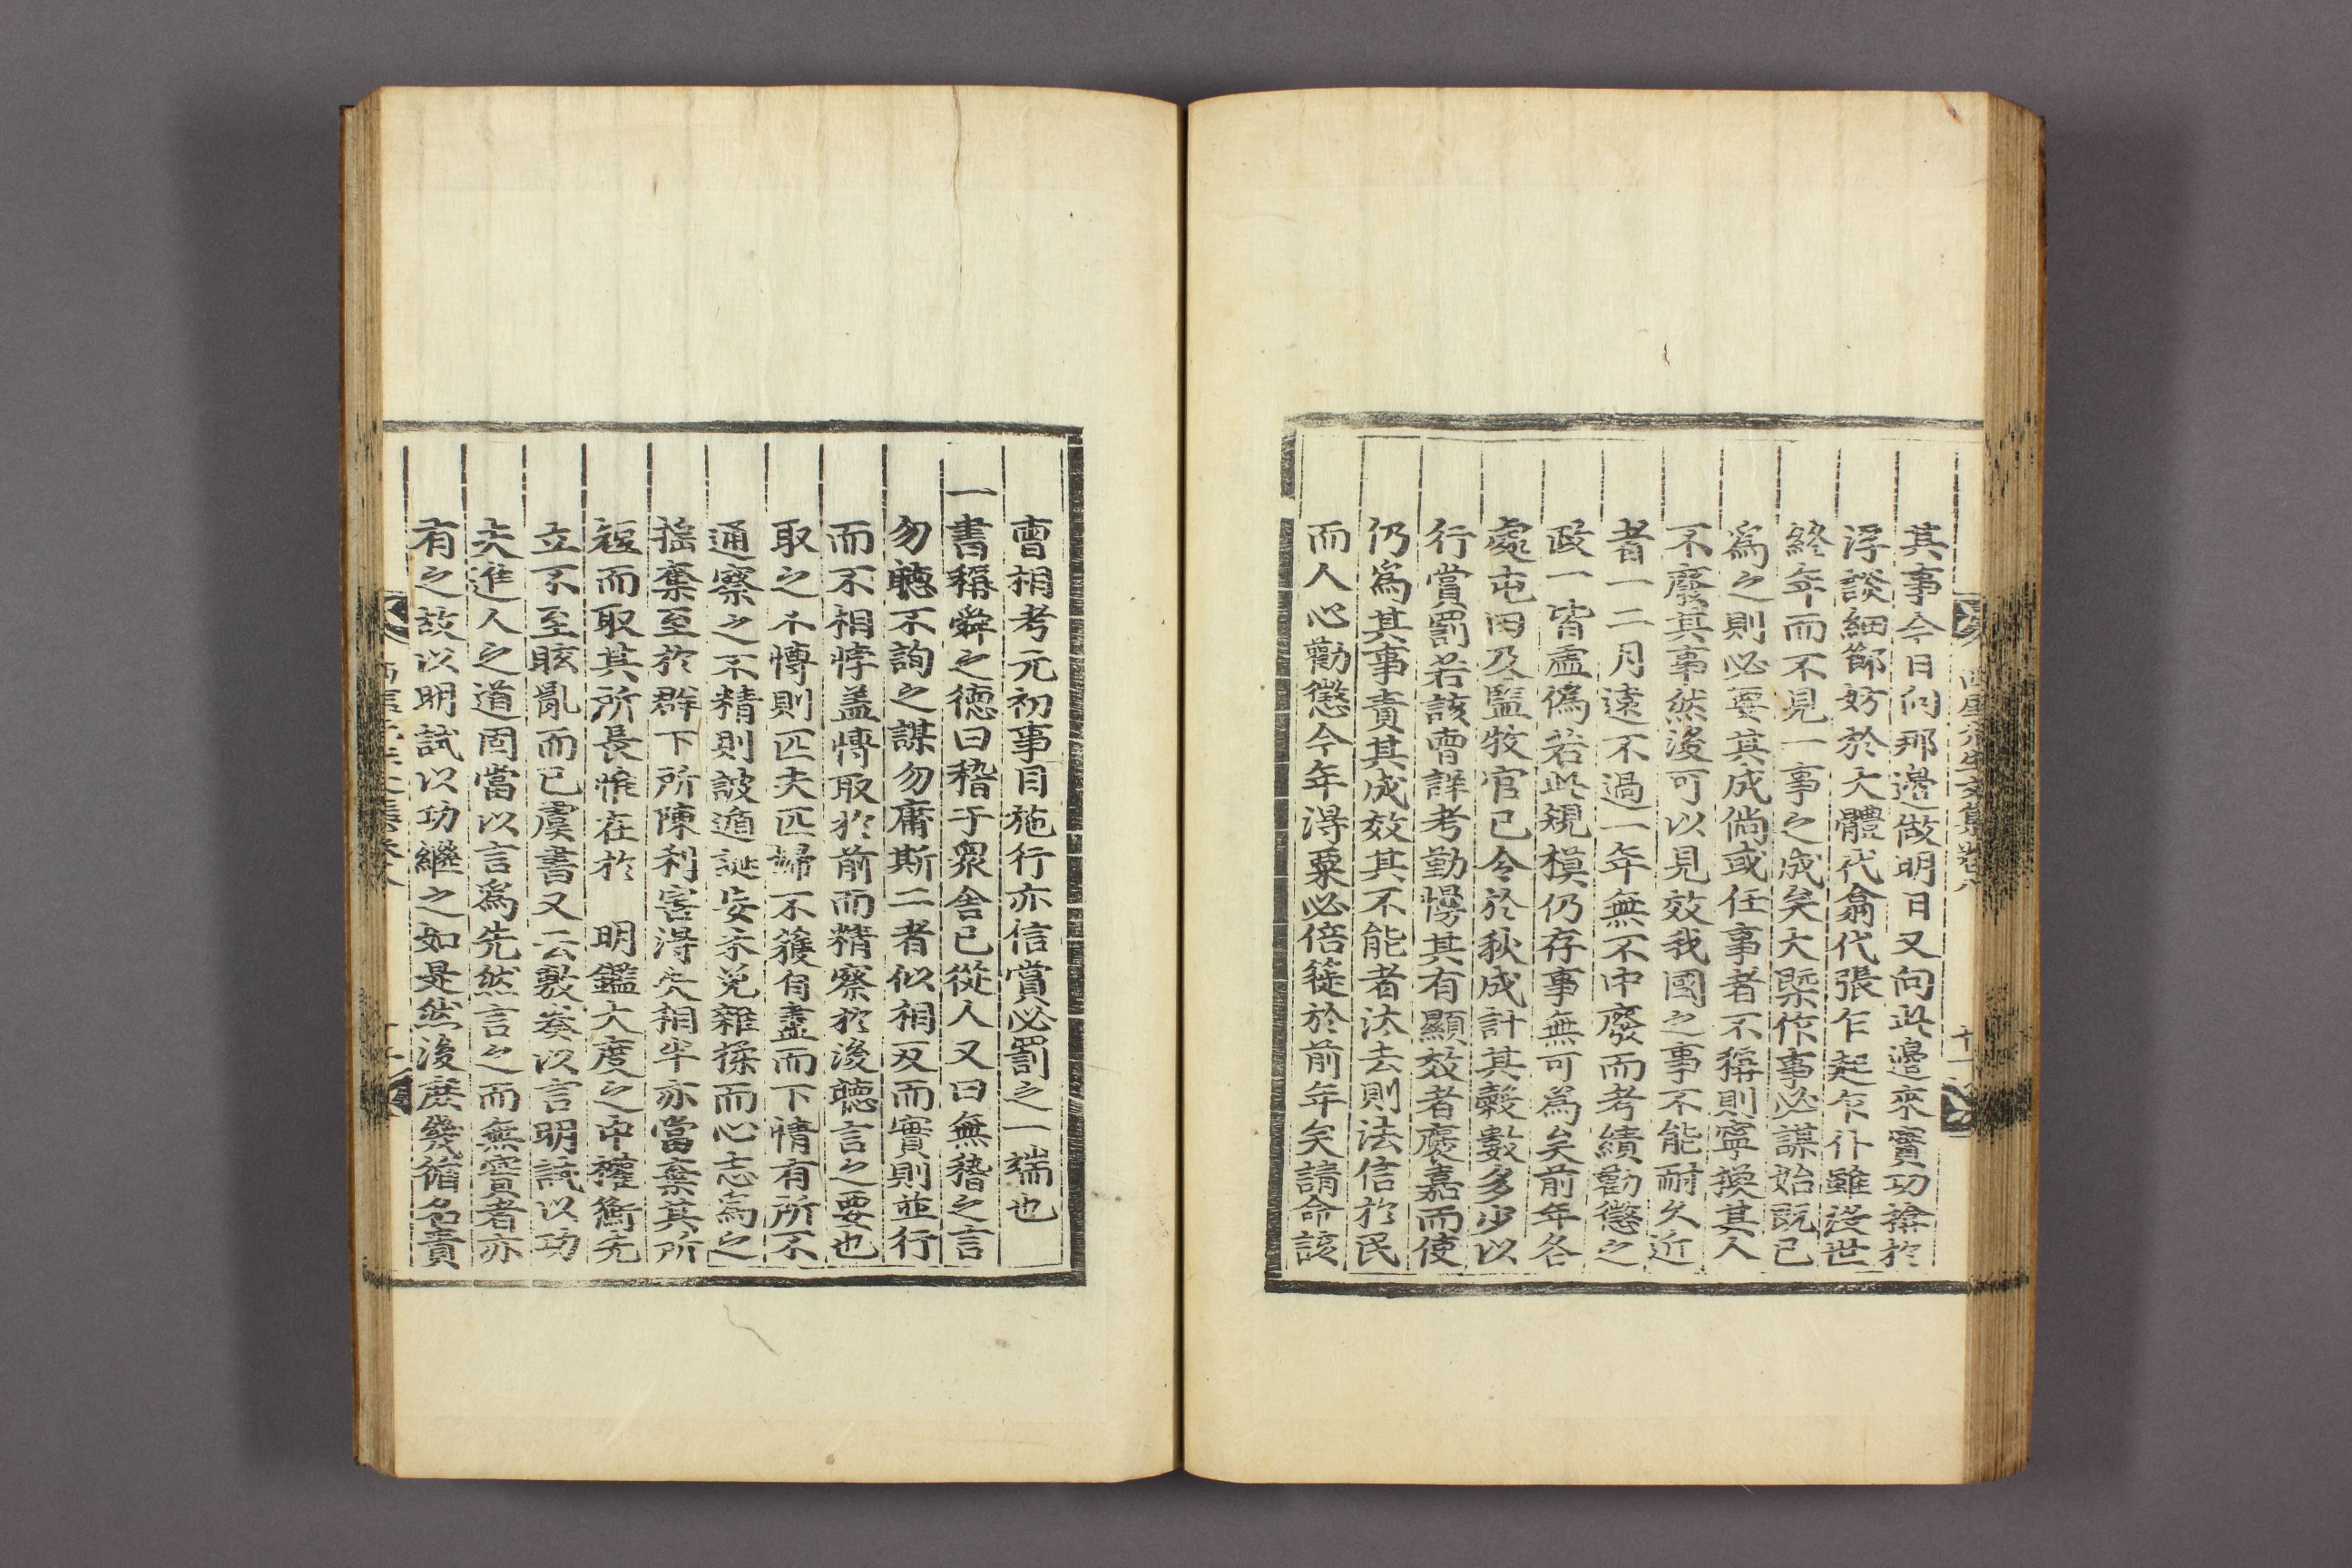 其事今日向那邊做明日又向此邊來實功褕於
浮談細節妨於大體代翕代張乍起乍仆雖沒世
終年而不見一事之成矣大槩作事必謀始旣已
爲之則必要其成倘或任事者不稱則寧換其人
不廢其事然後可以見效我國之事不能耐久近
者一二月遠不過一年無不中廢而考績勸懲之
政一皆虛僞若此規模仍存事無可爲矣前年各
處屯田及監牧官已令於秋成計其穀數多少以
行賞罰若該曺詳考勤慢其有顯效者褒嘉而使
仍爲其事責其成效其不能者汰去則法信於民
而人心勸懲今年得粟必倍蓰於前年矣請命該
西厓先生文集卷之八 十一
曺相考元初事目施行亦信賞必罰之一端也
一書稱舜之德曰稽于衆舍已從人又曰無稽之言
勿聽不詢之謀勿庸斯二者似相反而實則並行
而不相悖盖慱取於前而精察於後聽言之要也
取之不慱則匹夫匹婦不獲自盡而下情有所不
通察之不精則詖遁誕妄亦免雜揉而心志爲之
搖棄至於群下所陳利害得失相半亦當棄其所
短而取其所長惟在於 明鑑大度之中權衡先
立不至眩亂而已虞書又云敷奏以言明試以功
夫進人之道固當以言爲先然言之而無實者亦
有之故以明試以功繼之如是然後庶幾循名責